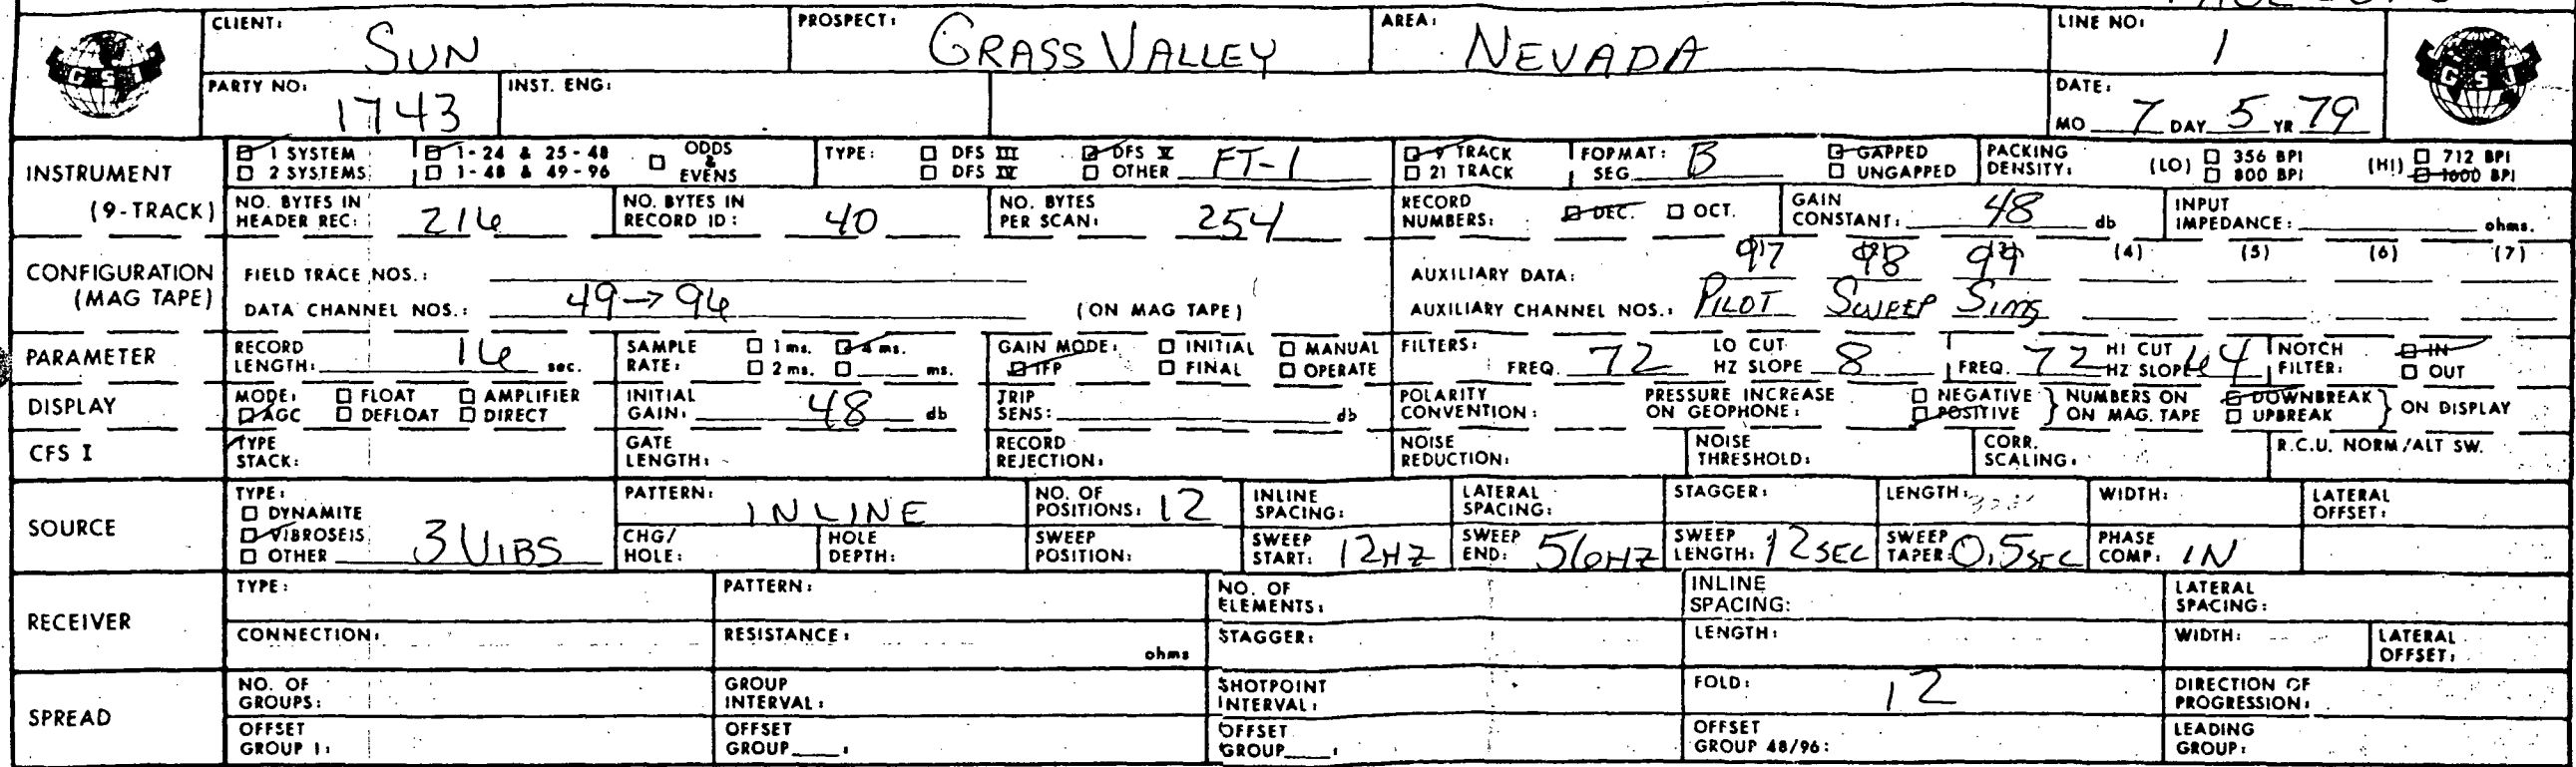 CLIENT: SUN PROSPECT: GRASS VALLEY AREA: NEVADA LINE NO: 1
GSI GSI
PARTY NO: 1743 INST. ENG: DATE: MO 7 DAY 5 YR 79
INSTRUMENT (9-TRACK)
1 SYSTEM 1-24 & 25-48 ODDS & EVENS TYPE: DFS III DFS V FT-1 9 TRACK FORMAT: B GAPPED PACKING DENSITY: (LO) 356 BPI (HI) 712 BPI
2 SYSTEMS 1-48 & 49-96 DFS IV OTHER 21 TRACK SEG. UNGAPPED 800 BPI 1600 BPI
NO. BYTES IN HEADER REC: 216 NO. BYTES IN RECORD ID: 40 NO. BYTES PER SCAN: 254 RECORD NUMBERS: DEC. OCT. GAIN CONSTANT: 48 db INPUT IMPEDANCE: ohms.
CONFIGURATION (MAG TAPE)
FIELD TRACE NOS.: AUXILIARY DATA: 97 98 99 (4) (5) (6) (7)
DATA CHANNEL NOS.: 49→96 (ON MAG TAPE) AUXILIARY CHANNEL NOS.: PILOT SWEEP SIMS
PARAMETER RECORD LENGTH: 16 sec. SAMPLE RATE: 1 ms. 4 ms. 2 ms. ms. GAIN MODE: INITIAL MANUAL IFP FINAL OPERATE FILTERS: FREQ. 72 LO CUT HZ SLOPE 8 FREQ. 72 HI CUT HZ SLOPE 64 NOTCH FILTER: IN OUT
DISPLAY MODE: FLOAT AMPLIFIER AGC DEFLOAT DIRECT INITIAL GAIN: 48 db TRIP SENS: db POLARITY CONVENTION: PRESSURE INCREASE ON GEOPHONE: NEGATIVE POSITIVE } NUMBERS ON MAG. TAPE DOWNBREAK UPBREAK } ON DISPLAY
CFS I TYPE STACK: GATE LENGTH: RECORD REJECTION: NOISE REDUCTION: NOISE THRESHOLD: CORR. SCALING: R.C.U. NORM/ALT SW.
SOURCE
TYPE: DYNAMITE VIBROSEIS OTHER 3 VIBS PATTERN: INLINE NO. OF POSITIONS: 12 INLINE SPACING: LATERAL SPACING: STAGGER: LENGTH: WIDTH: LATERAL OFFSET:
CHG/HOLE: HOLE DEPTH: SWEEP POSITION: SWEEP START: 12HZ SWEEP END: 56HZ SWEEP LENGTH: 12SEC SWEEP TAPER: 0.5SEC PHASE COMP: IN
RECEIVER
TYPE: PATTERN: NO. OF ELEMENTS: INLINE SPACING: LATERAL SPACING:
CONNECTION: RESISTANCE: ohms STAGGER: LENGTH: WIDTH: LATERAL OFFSET:
SPREAD
NO. OF GROUPS: GROUP INTERVAL: SHOTPOINT INTERVAL: FOLD: 12 DIRECTION OF PROGRESSION:
OFFSET GROUP 1: OFFSET GROUP : OFFSET GROUP : OFFSET GROUP 48/96: LEADING GROUP: